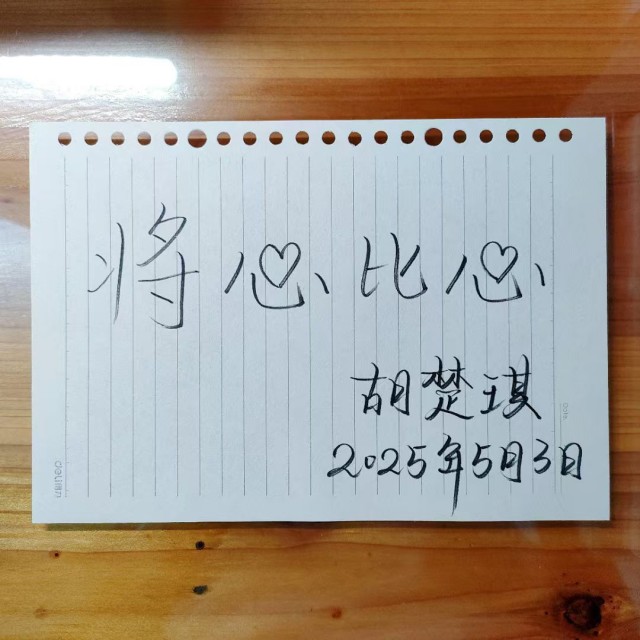 将心比心
胡楚琪
2025年5月3日